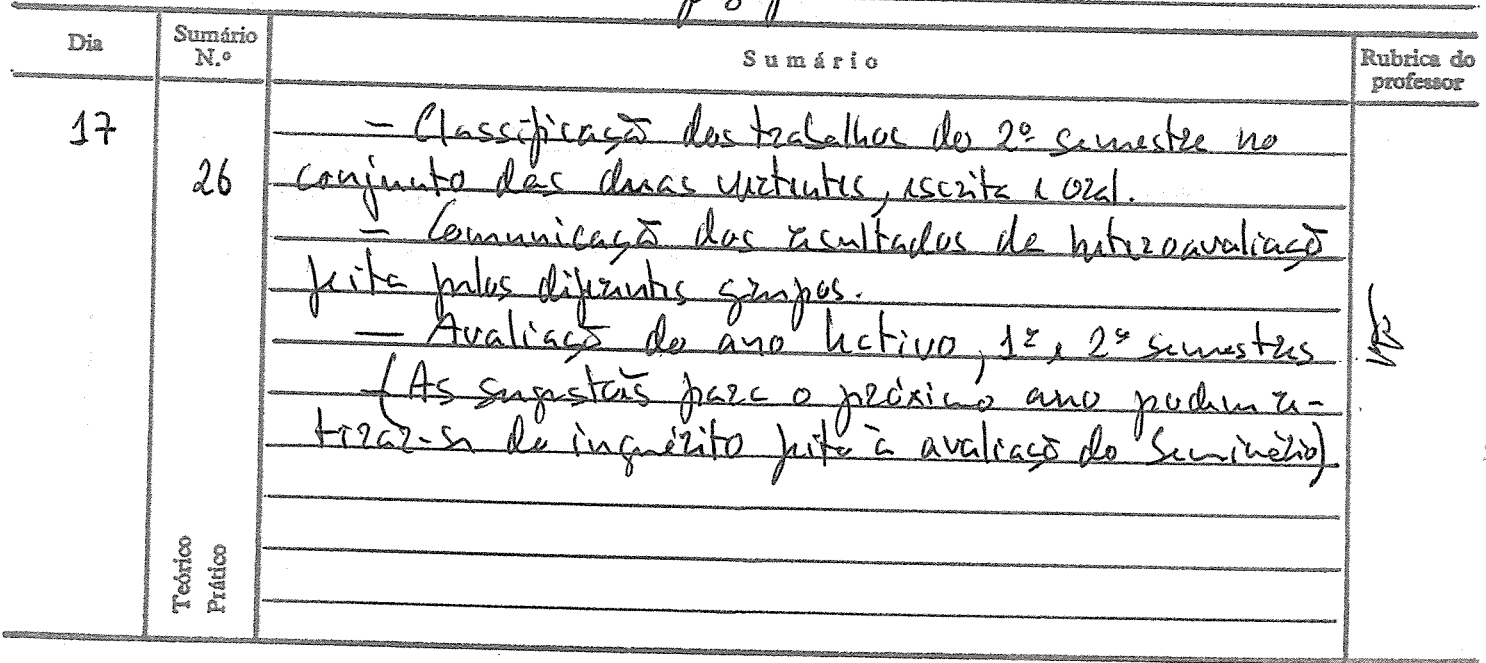 Dia
Sumário
N.º
Sumário
Rubrica do
professor
17
26
- Classificação dos trabalhos do 2º semestre no
conjunto das duas vertentes, escrita e oral.
- Comunicação dos resultados de heteroavaliação
feita pelos diferentes grupos.
- Avaliação do ano lectivo, 1º e 2º semestres
(As sugestões para o próximo ano podem re-
tirar-se do inquérito feito à avaliação do Seminário)
Teórico
Prático